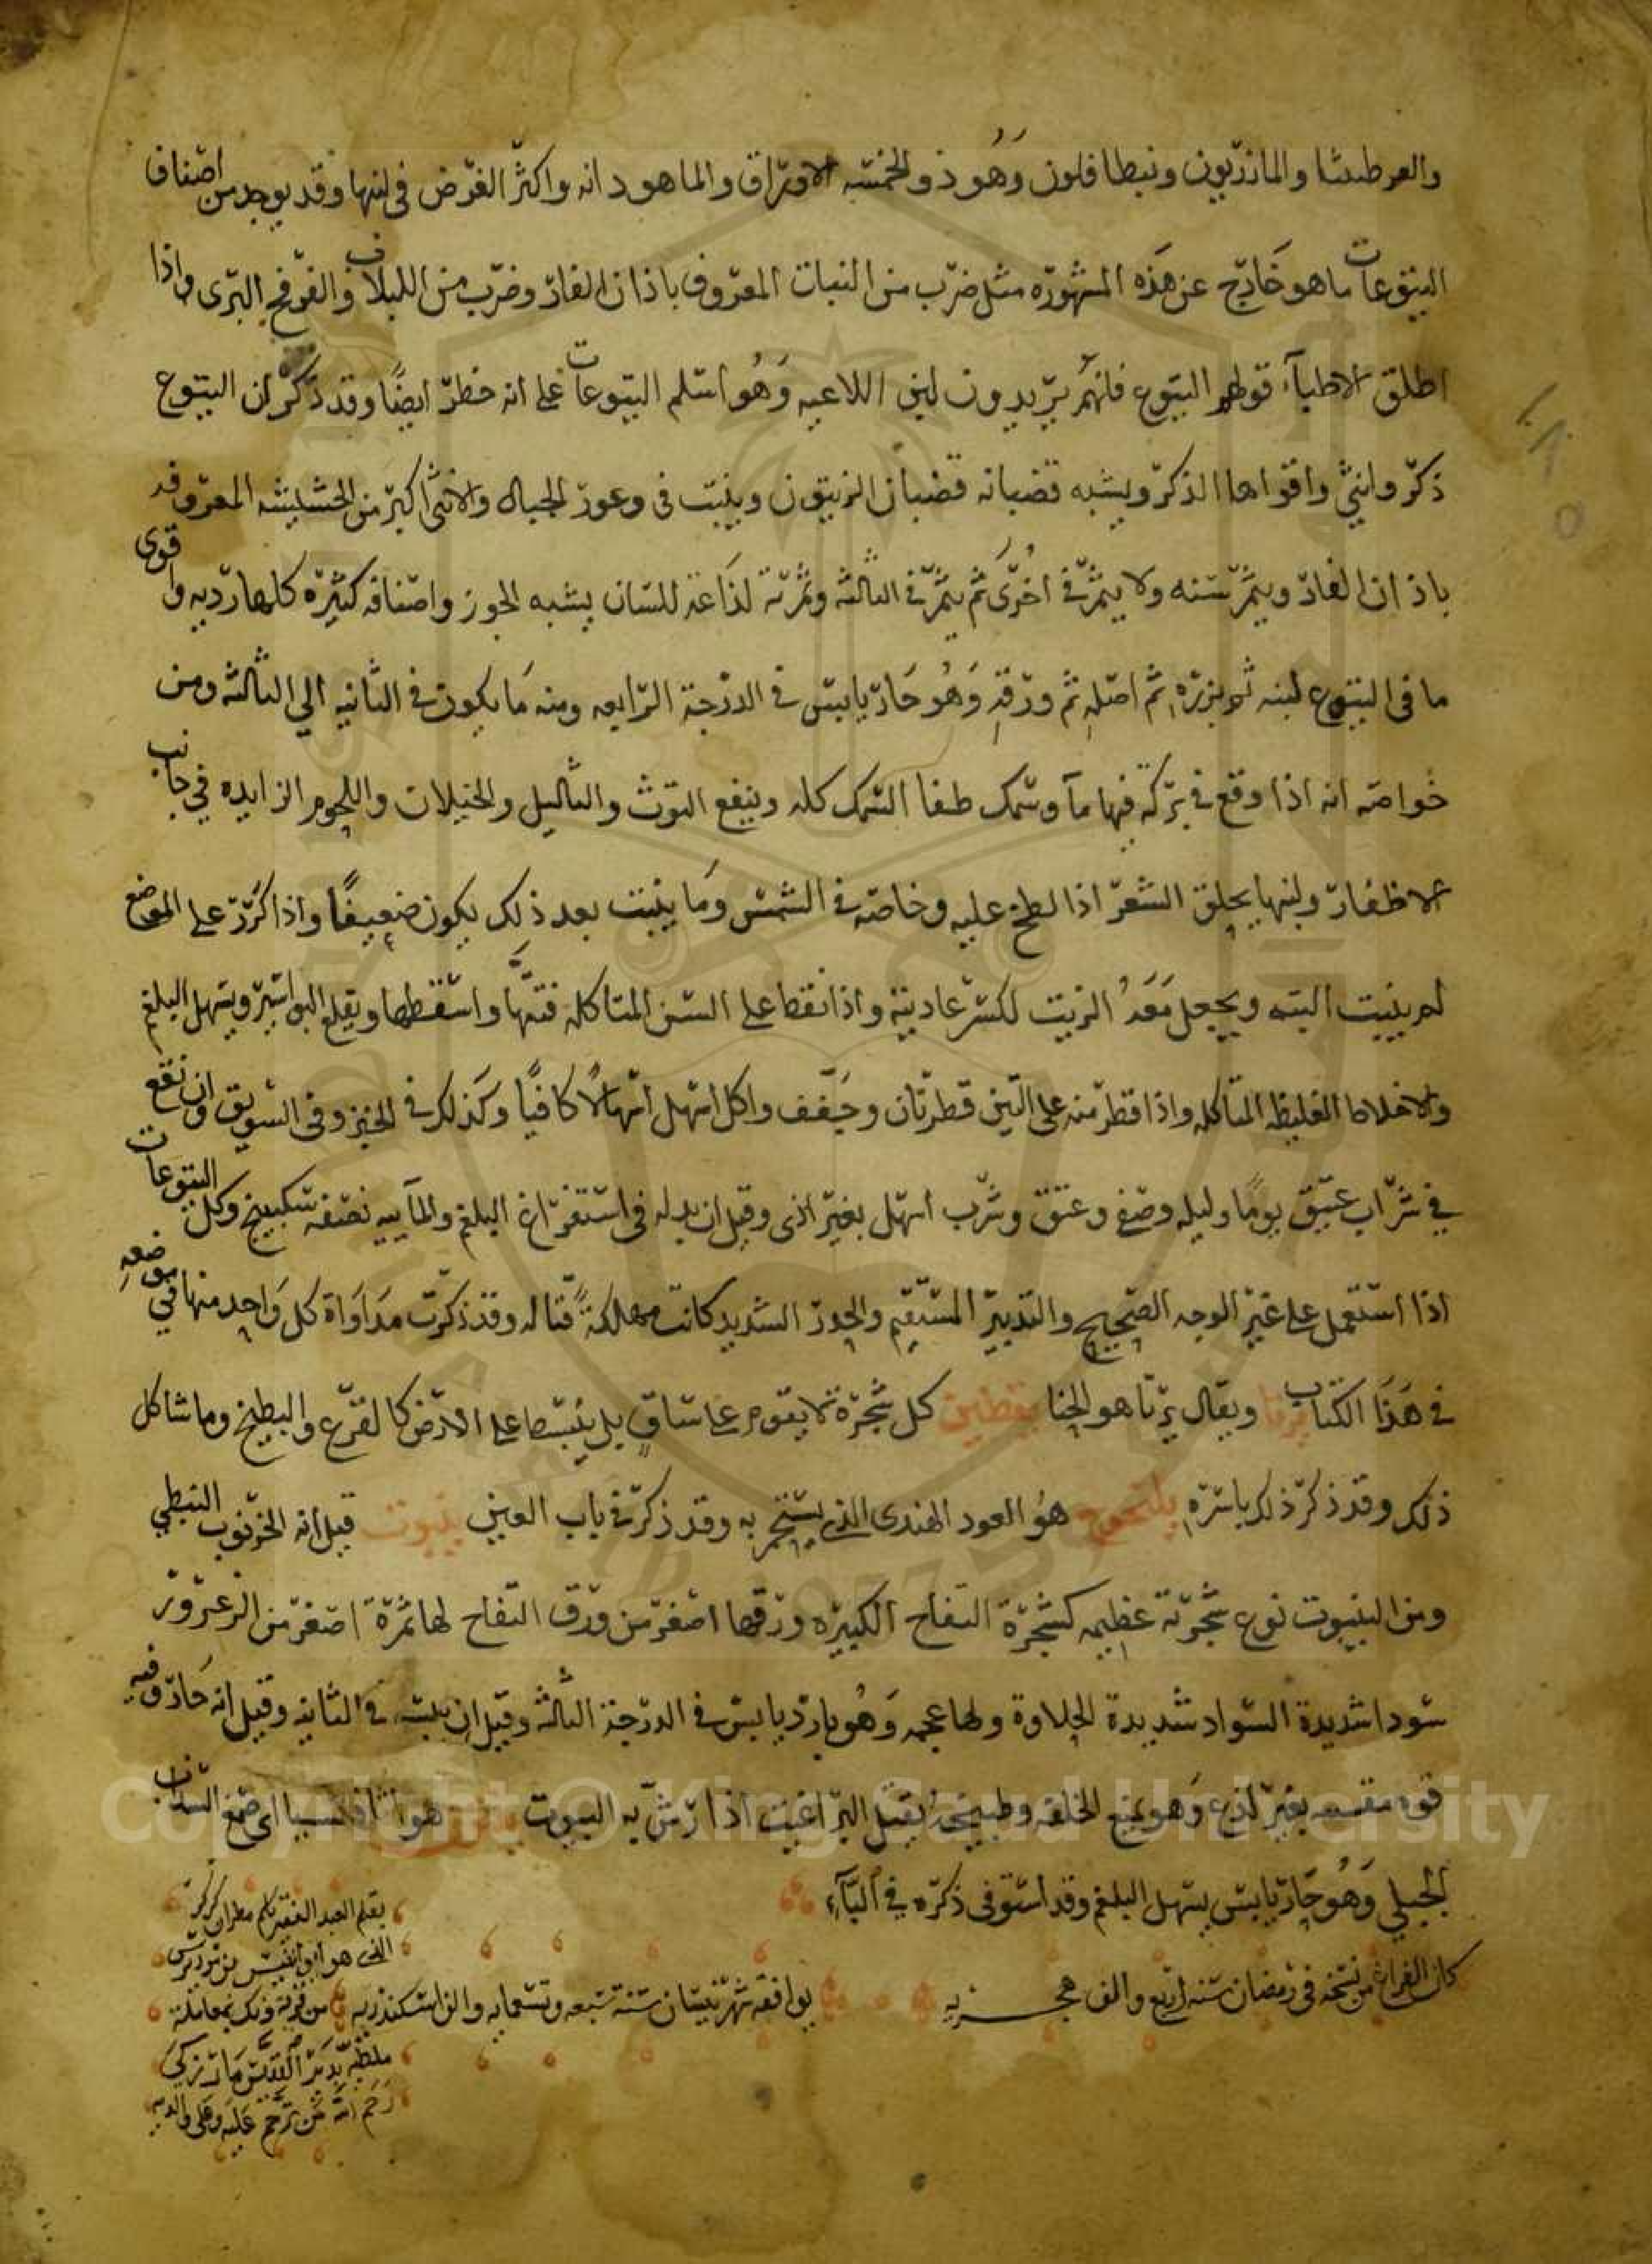 والعرطنيثا والمازريون وبنطافلون وهو ذو الخمسه الاوراق والماهودانه واكثر الغرض في لبنها وقد يوجد من اصناف
اليتوعات ما هو خارج عن هذه المشهوره مثل ضرب من النبات المعروف باذان الفار وضرب من اللبلاب والفرفح البرى واذا
اطلق الاطباء قولهم اليتوع فانهم يريدون لبن اللاعيه وهو اسلم اليتوعات على انه خطر ايضا وقد ذكر ان اليتوع
ذكر وانثى واقواها الذكر ويشبه قضبانه قضبان الزيتون وينبت في وعور الجبال والانثى اكبر من الحشيشه المعروفه
باذان الفار ويثمر سنه ولا يثمر في اخرى ثم يثمر في الثالثه وثمرته لذاعة للسان يشبه الجوز واصنافه كثيره كلها رديه واقوى
ما في اليتوع لبنه ثم بزره ثم اصله ثم ورقه وهو حار يابس في الدرجة الرابعه ومنه ما يكون في الثانيه الي الثالثه ومن
خواصه انه اذا وقع في بركة فيها مآ وسمك طفا السمك كله وينفع التوث والثاليل والخيلان واللحوم الزايده في جانب
الاظفار ولبنها يحلق الشعر اذا لطخ عليه وخاصه في الشمس وما ينبت بعد ذلك يكون ضعيفا واذا كرر على الموضع
لم ينبت البته ويجعل معه الزيت لكسر عاديته واذا نقط على السن المتاكله فتتها واسقطها ويقلع البواسير ويسهل البلغم
والاخلاط الغليظه المتاكله واذا قطر منه على التين قطرتان وجفف واكل اسهل اسهالا كافيا وكذلك في الخبز وفي السويق وان نقع
في شراب عتيق يوما وليله وصفي وعتق وشرب اسهل بغير اذى وقيل ان بدله في استفراغ البلغم والماييه نصفه سكبينج وكل اليتوعات
اذا استعمل على غير الوجه الصحيح والتدبير المستقيم والحدر الشديد كانت مهلكة قتاله وقد ذكرت مداواة كل واحد منها في موضعه
في هذا الكتاب يرنا ويقال يرنا هو الحنا يقطين كل شجرة لا يقوم على ساق بل ينبسط على الارض كالقرع والبطيخ وما شاكل
ذلك وقد ذكر ذلك باسره يلنجوج هو العود الهندى الذى يتبخر به وقد ذكر في باب العين ينبوت قيل انه الخرنوب النبطي
ومن الينبوت نوع شجرته عظيمه كشجرة التفاح الكبيره ورقها اصغر من ورق التفاح لها ثمرة اصغر من الزعرور
سودا شديدة السواد شديدة الحلاوة ولها عجمه وهو بارد يابس في الدرجة الثالثه وقيل ان يبسه في الثانيه وقيل انه حار وفيه
قوه مقبضه بغير لذع وهو يمنع الخلفه وطبيخه يقتل البراغيث اذا رش به البيوت هو ثافسيا اى صمغ السداب
الجبلي وهو حار يابس يسهل البلغم وقد استوفى ذكره في الثآء
كان الفراغ من نسخه في رمضان سنه اربع والف هجريه يوافقه شهر نيسان سنة سبعه وتسعمايه والف اسكندريه
بقلم العبد الفقير مطران كركر
من قرية ونك بمعاملة
ملطيه بدير القديس مار زكي
رحم الله من ترحم عليه وعلى والديه